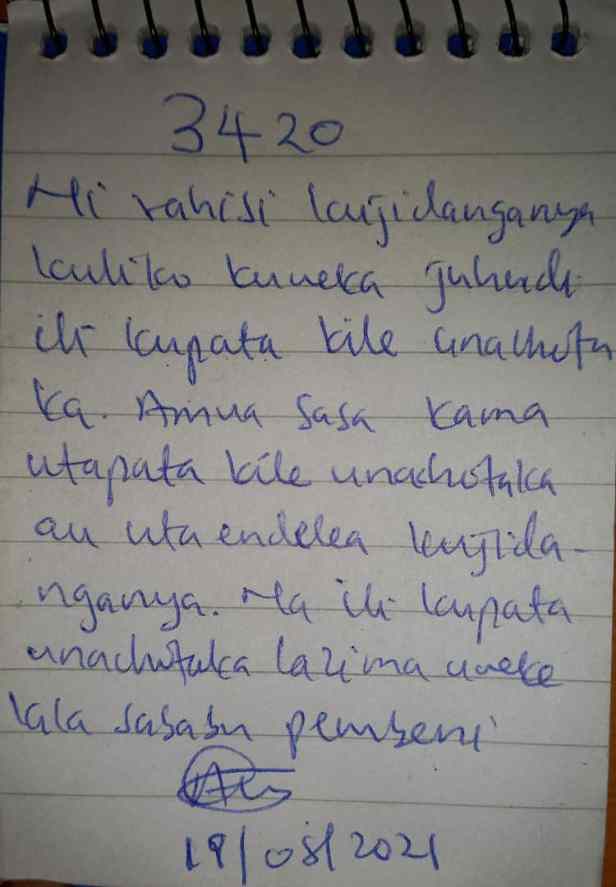 3420
Ni rahisi kujidanganya
kuliko kuweka juhudi
ili kupata kile unachota
ka. Amua sasa kama
utapata kile unachotaka
au uta endelea kujida-
nganya. Na ili kupata
unachotaka lazima uweke
kala sababu pembeni
19/08/2021